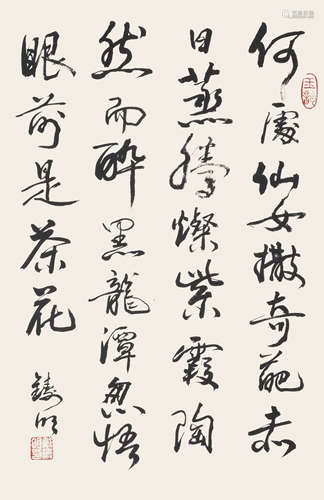 何處仙女撒奇葩赤
日蒸騰燦紫霞陶
然而醉黑龍潭忽悟
眼前是茶花